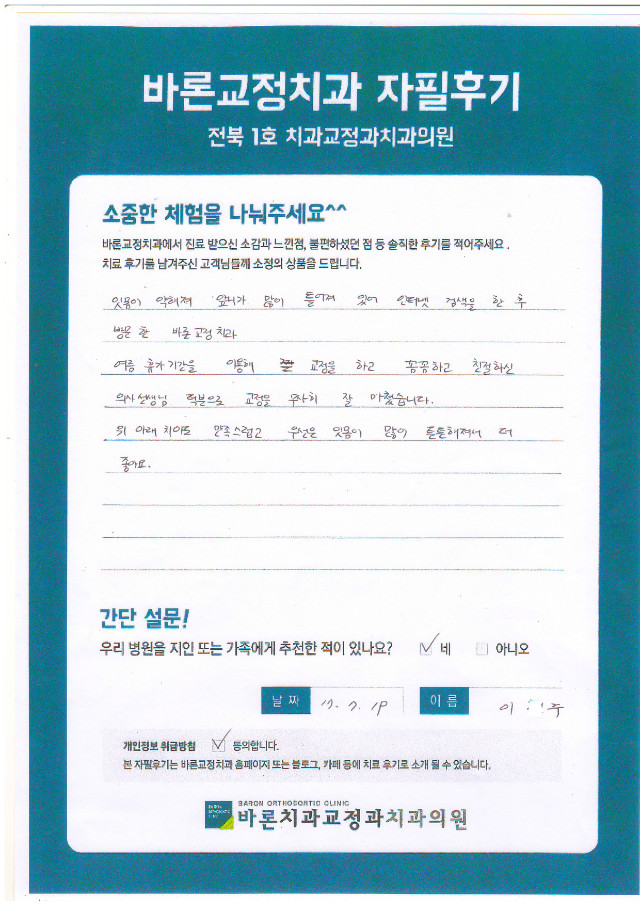 바론교정치과 자필후기
전북 1호 치과교정과치과의원
소중한 체험을 나눠주세요^^
바론교정치과에서 진료 받으신 소감과 느낀점, 불편하셨던 점 등 솔직한 후기를 적어주세요.
치료 후기를 남겨주신 고객님들께 소정의 상품을 드립니다.
잇몸이 약해져 앞니가 많이 틀어져 있어 인터넷 검색을 한 후
방문 한 바론교정치과
여름 휴가기간을 이용해 교정을 하고 꼼꼼하고 친절하신
의사선생님 덕분으로 교정을 무사히 잘 마쳤습니다.
위 아래 치아도 만족스럽고 우선은 잇몸이 많이 튼튼해져서 더
좋아요.
간단 설문!
우리 병원을 지인 또는 가족에게 추천한 적이 있나요? ☑ 네 ☐ 아니오
날짜 17. 7. 19 이름 이 주
개인정보 취급방침 ☑ 동의합니다.
본 자필후기는 바론교정치과 홈페이지 또는 블로그, 카페 등에 치료 후기로 소개 될 수 있습니다.
BARON ORTHODORTIC CLINIC
바론치과교정과치과의원